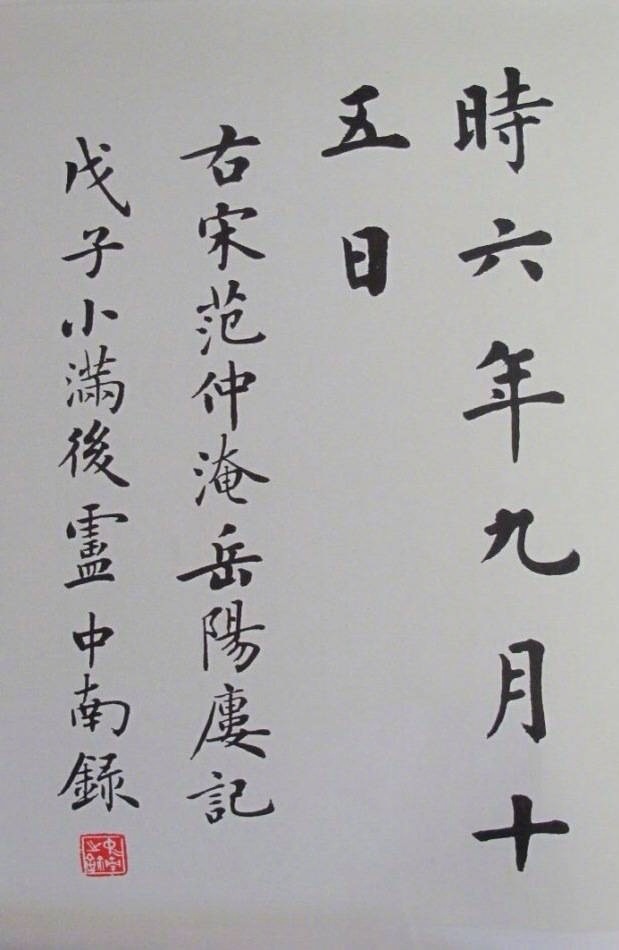 時六年九月十
五日
右宋范仲淹岳陽廔記
戊子小滿後盧中南録